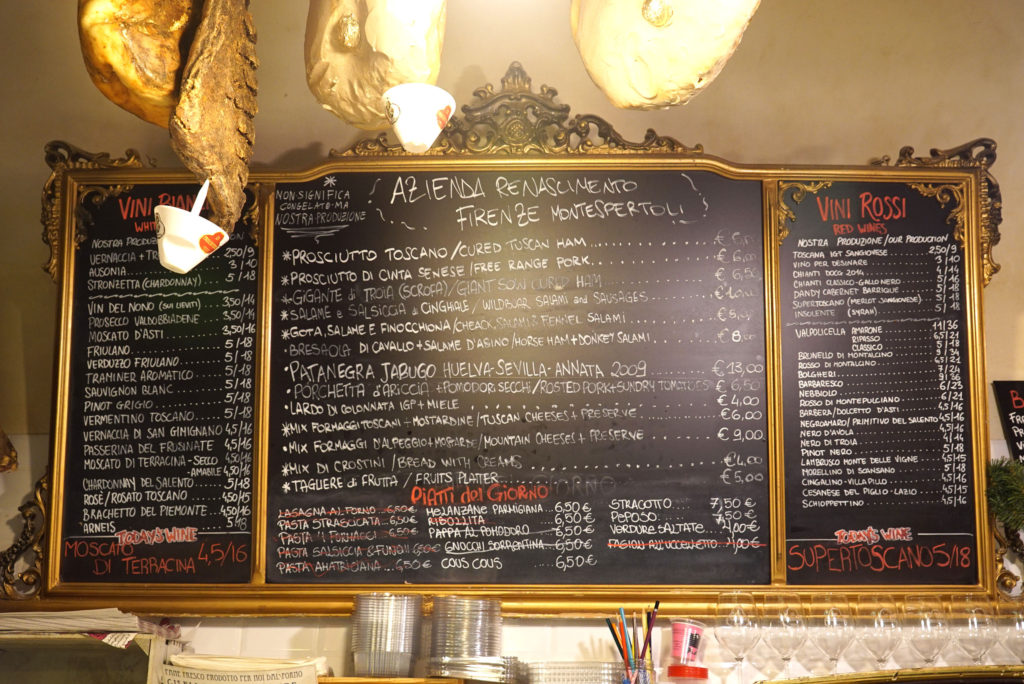 VINI
NOSTRA
VERNACCIA + 250/9
AUSONIA 3/10
STRONZETTA (CHARDONNAY) 5/18
VIN DEL NONO (SUI LIEVITI) 3,50/14
PROSECCO VALDOBBIADENE 3,50/16
MOSCATO D'ASTI 3,50/16
FRIULANO 5/18
VERDUZZO FRIULANO 5/18
TRAMINER AROMATICO 5/18
SAUVIGNON BLANC 5/18
PINOT GRIGIO 5/18
VERMENTINO TOSCANO 5/18
VERNACCIA DI SAN GIMIGNANO 4,5/16
PASSERINA DEL FRUSINATE 4,5/16
MOSCATO DI TERRACINA - SECCO 4,50/16
- AMABILE 4,50/16
CHARDONNAY DEL SALENTO 4,5/18
ROSÉ/ROSATO TOSCANO 450/15
BRACHETTO DEL PIEMONTE 4,50/16
ARNEIS 5/18
TODAY'S WINE
MOSCATO
DI TERRACINA 4,5/16
NON SIGNIFICA
CONGELATO-MA
NOSTRA PRODUZIONE
AZIENDA RENASCIMENTO
FIRENZE MONTESPERTOLI
*PROSCIUTTO TOSCANO/CURED TUSCAN HAM
*PROSCIUTTO DI CINTA SENESE/FREE RANGE PORK
*GIGANTE di TROIA (SCROFA)/GIANT SOW CURED HAM
*SALAME e SALSICCIA di CINGHIALE / WILDBOAR SALAMI AND SAUSAGES
*GOTA, SALAME E FINOCCHIONA/CHEACK, SALAMI & FENNEL SALAMI
BRESAOLA DI CAVALLO + SALAME D'ASINO/HORSE HAM + DONKEY SALAMI € 8
*PATANEGRA JABUGO HUELVA-SEVILLA-ANNATA 2009 € 13,00
*PORCHETTA d'ARICCIA + POMODOR SECCHI/ROSTED PORK + SUNDRY TOMATOES € 6,50
*LARDO DI COLONNATA IGP + MIELE € 4,00
*MIX FORMAGGI TOSCANI + MOSTARDINE/TUSCAN CHEESES + PRESERVE € 6,00
*MIX FORMAGGI D'ALPEGGIO + MOSTARDE/MOUNTAIN CHEESES + PRESERVE € 9,00
*MIX DI CROSTINI /BREAD WITH CREAMS € 4,00
*TAGLIERE di FRUTTA / FRUITS PLATTER € 5,00
PIATTI del GIORNO
LASAGNA AL FORNO 6,50€
PASTA STRASCICATA 6,50€
PASTA "I FORNACI" 6,50€
PASTA SALSICCIA & FUNGHI 6,50€
PASTA AMATRICIANA 6,50€
MELANZANE PARMIGIANA 6,50€
RIBOLLITA 6,50€
PAPPA AL POMODORO 6,50€
GNOCCHI SORRENTINA 6,50€
COUS COUS 6,50€
STRACOTTO 7,50€
PEPOSO 7,50€
VERDURE SALTATE 4,00€
FAGIOLI ALL'UCCELLETTO 4,00€
VINI ROSSI
RED WINES
NOSTRA PRODUZIONE/OUR PRODUCTION
TOSCANA IGT SANGIOVESE 250/9
VINO PER DESINARE 3/10
CHIANTI DOCG 2014 4/14
CHIANTI CLASSICO-GALLO NERO 5/16
DANDY CABERNET BARRIQUE 5/18
SUPERTOSCANO (MERLOT SANGIOVESE) 5/18
INSOLENTE (SYRAH) 5/18
VALPOLICELLA AMARONE 11/36
RIPASSO 6,5/21
CLASSICO 5/18
BRUNELLO DI MONTALCINO 9/34
ROSSO DI MONTALCINO 6,5/21
BOLGHERI 7/24
BARBARESCO 9/36
NEBBIOLO 6/23
ROSSO DI MONTEPULCIANO 6/21
BARBERA/DOLCETTO D'ASTI 4,5/16
NEGROAMARO/PRIMITIVO DEL SALENTO 4,5/16
NERO D'AVOLA 4,5/16
NERO DI TROIA 4/14
PINOT NERO 5/18
LAMBRUSCO MONTE DELLE VIGNE 4,5/15
MORELLINO DI SCANSANO 5/18
CINGALINO-VILLA PILLO 5/18
CESANESE DEL PIGLIO-LAZIO 4,5/15
SCHIOPPETTINO 5/18
TODAY'S WINE
SUPERTOSCANO 5/18
PANE FRESCO PRODOTTO PER NOI DAL FORNO